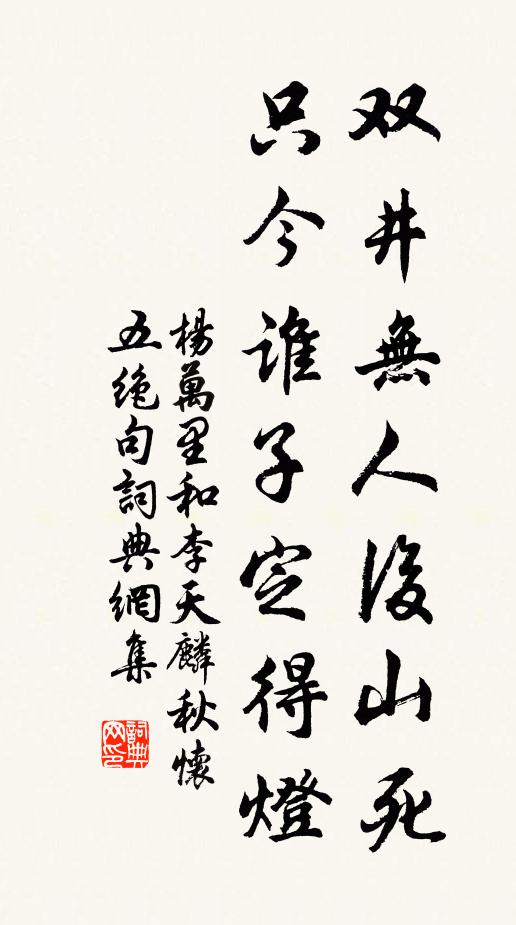 双井無人後山死
只今谁子定得燈
楊萬里和李天麟秋懷
五绝句詞典網集
詞典
网印